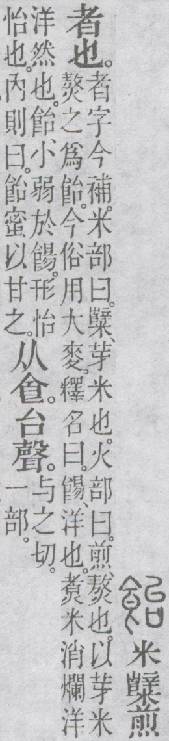 飴 米糱煎
者也。
者字今補。米部曰。糱、芽米也。火部曰。煎、熬也。以芽米
熬之爲飴。今俗用大麥。釋名曰。餳、洋也。煑米消爛洋
洋然也。飴、小弱於餳。形怡
怡也。內則曰。飴蜜以甘之。
从食。台聲。
与之切。
一部。